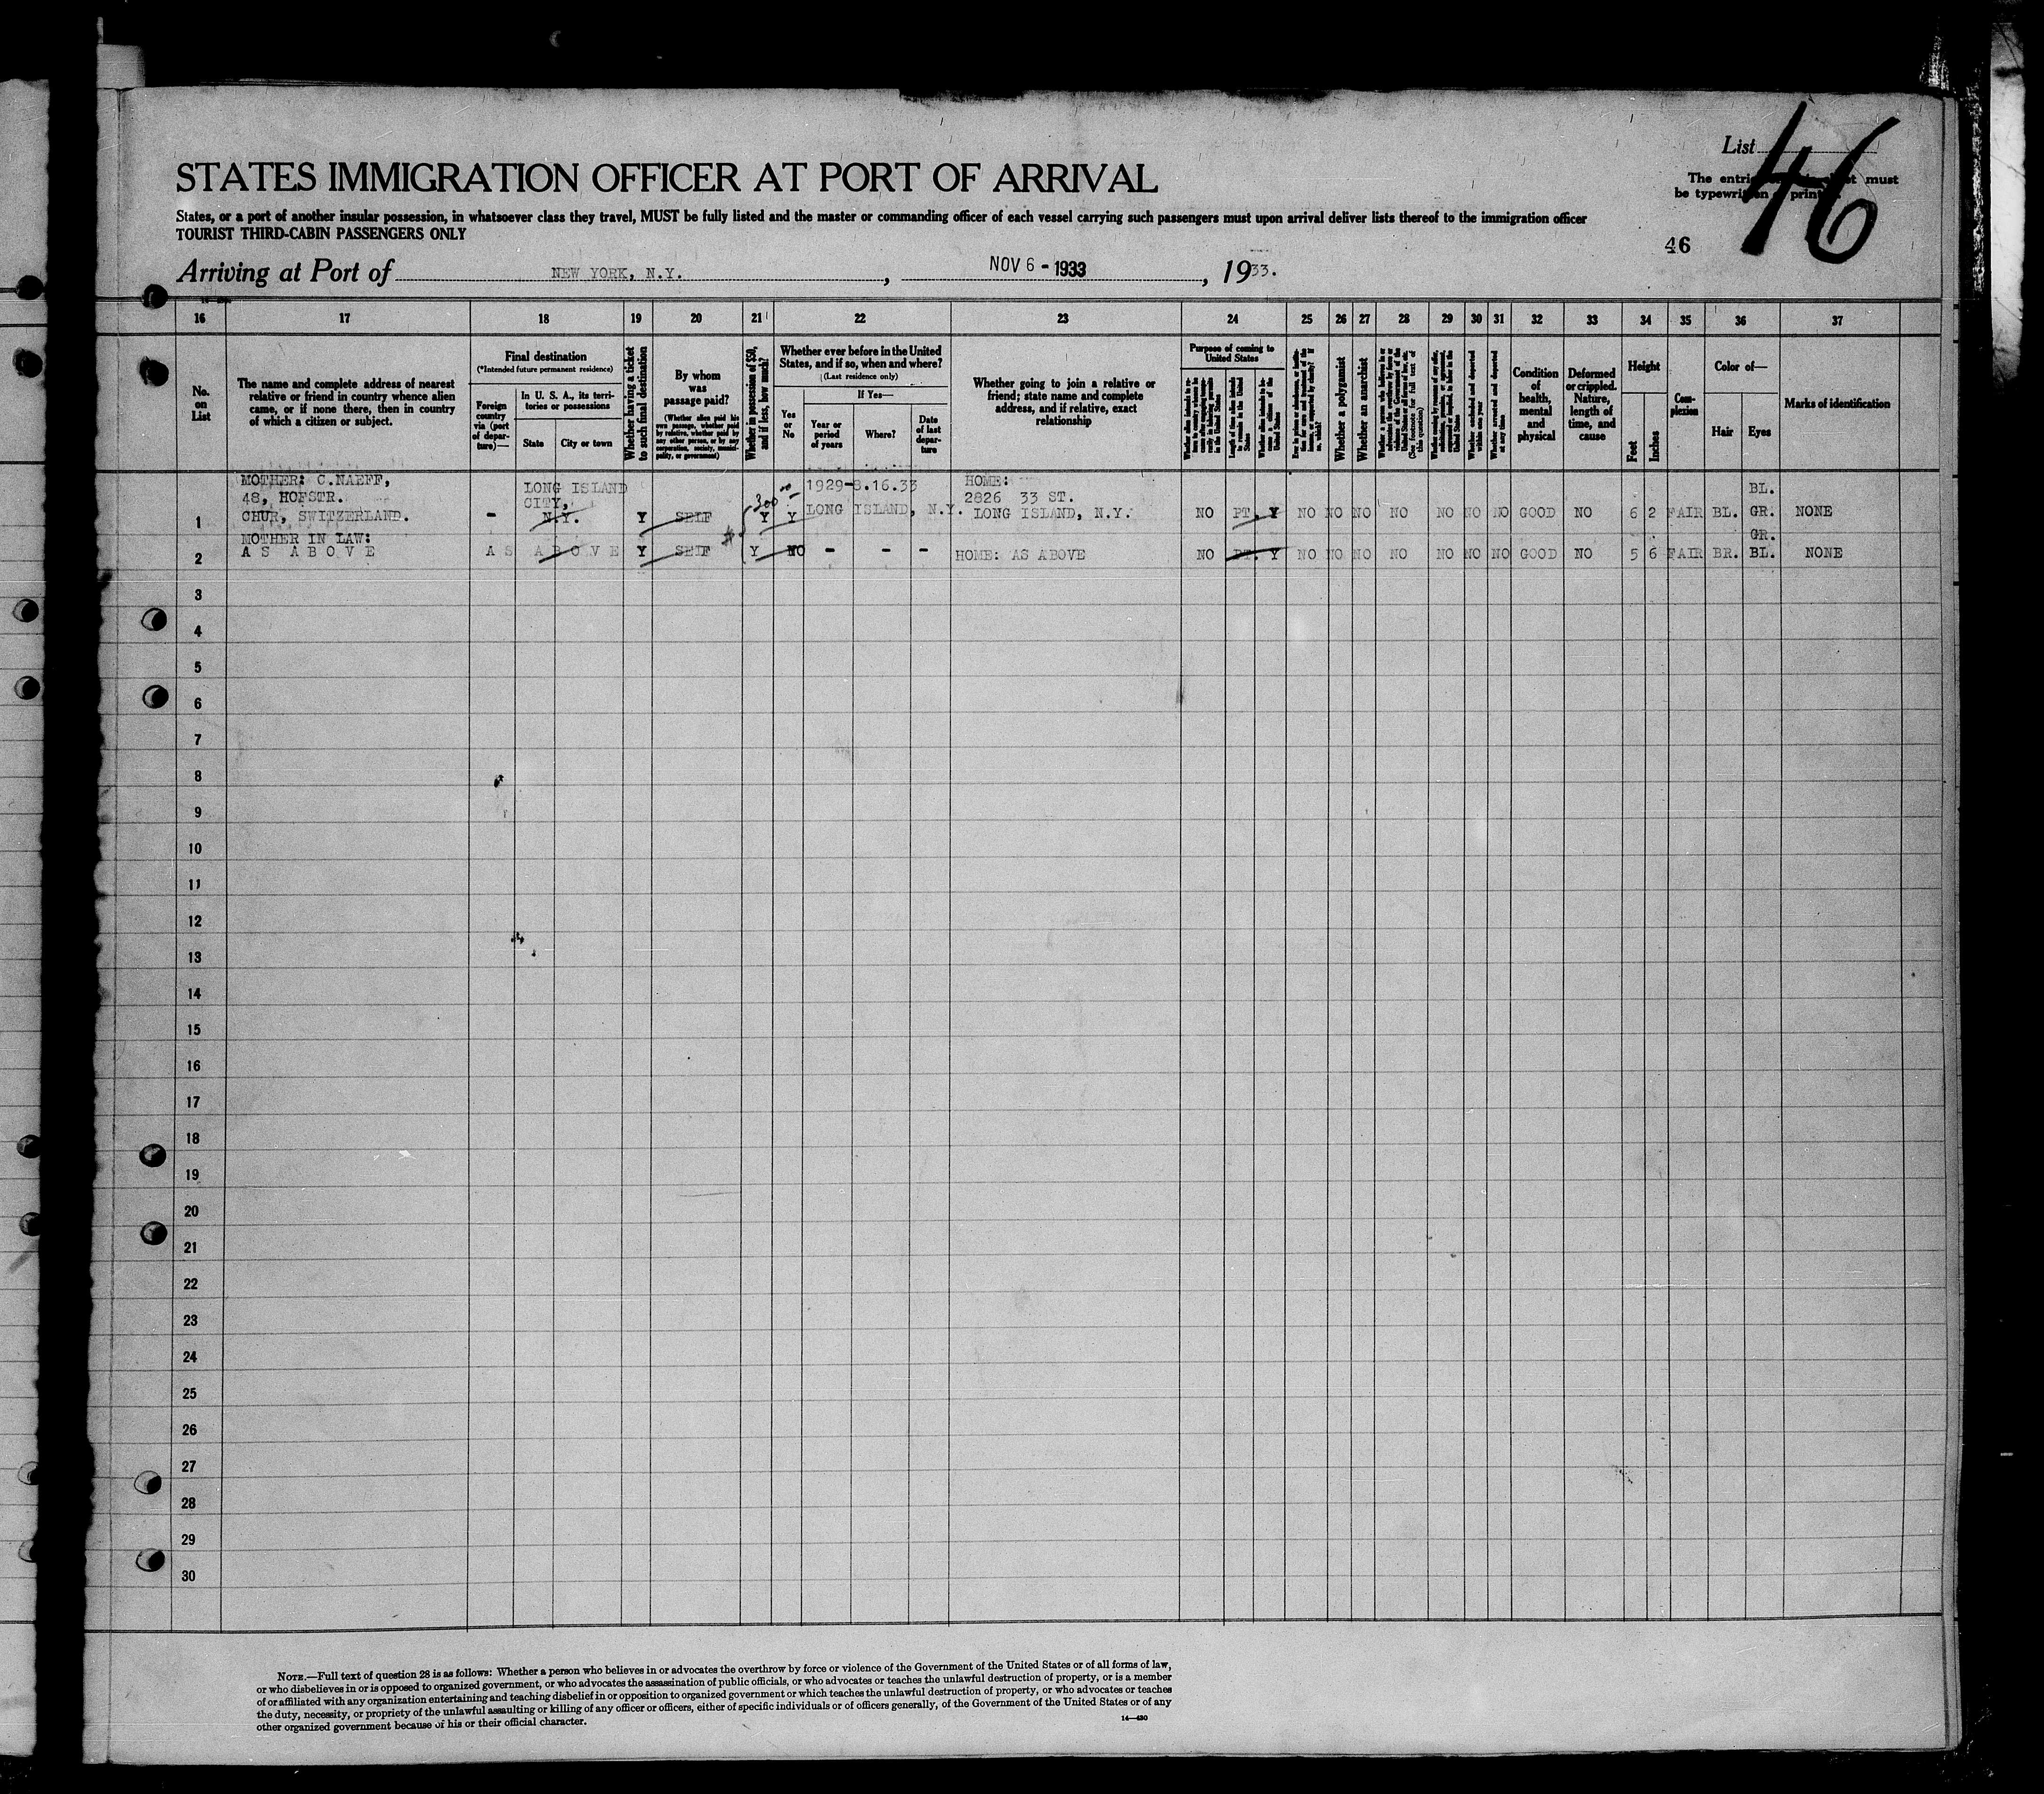 List 46
STATES IMMIGRATION OFFICER AT PORT OF ARRIVAL
The entries must
be typewritten print
States, or a port of another insular possession, in whatsoever class they travel, MUST be fully listed and the master or commanding officer of each vessel carrying such passengers must upon arrival deliver lists thereof to the immigration officer
TOURIST THIRD-CABIN PASSENGERS ONLY
46
Arriving at Port of NEW YORK, N.Y. , NOV 6 - 1933 , 1933.
16 17 18 19 20 21 22 23 24 25 26 27 28 29 30 31 32 33 34 35 36 37
No. on List
The name and complete address of nearest
relative or friend in country whence alien
came, or if none there, then in country
of which a citizen or subject.
Final destination
(*Intended future permanent residence)
Foreign country via (port of departure)—
In U. S. A., its territories or possessions
State
City or town
Whether having a ticket to such final destination
By whom was passage paid?
(Whether alien paid his own passage, whether paid by relative, whether paid by any other person, or by any corporation, society, municipality, or government)
Whether in possession of $50, and if less, how much?
Whether ever before in the United
States, and if so, when and where?
(Last residence only)
Yes or No
If Yes—
Year or period of years
Where?
Date of last departure
Whether going to join a relative or
friend; state name and complete
address, and if relative, exact
relationship
Purpose of coming to
United States
Whether a polygamist
Whether an anarchist
Whether arrested and deported at any time
Condition of health, mental and physical
Deformed or crippled. Nature, length of time, and cause
Height
Feet
Inches
Complexion
Color of—
Hair
Eyes
Marks of identification
MOTHER: C.NAEFF, LONG ISLAND 300 1929-8.16.33 HOME: BL.
48, HOFSTR. CITY, 2826 33 ST.
1 CHUR, SWITZERLAND. - N.Y. Y SELF Y Y LONG ISLAND, N.Y. LONG ISLAND, N.Y. NO PT. Y NO NO NO NO NO NO NO GOOD NO 6 2 FAIR BL. GR. NONE
MOTHER IN LAW: GR.
2 AS ABOVE AS ABOVE Y SELF Y NO - - - HOME: AS ABOVE NO PT. Y NO NO NO NO NO NO NO GOOD NO 5 6 FAIR BR. BL. NONE
3
4
5
6
7
8
9
10
11
12
13
14
15
16
17
18
19
20
21
22
23
24
25
26
27
28
29
30
NOTE.—Full text of question 28 is as follows: Whether a person who believes in or advocates the overthrow by force or violence of the Government of the United States or of all forms of law,
or who disbelieves in or is opposed to organized government, or who advocates the assassination of public officials, or who advocates or teaches the unlawful destruction of property, or is a member
of or affiliated with any organization entertaining and teaching disbelief in or opposition to organized government or which teaches the unlawful destruction of property, or who advocates or teaches
the duty, necessity, or propriety of the unlawful assaulting or killing of any officer or officers, either of specific individuals or of officers generally, of the Government of the United States or of any
other organized government because of his or their official character.
14—430